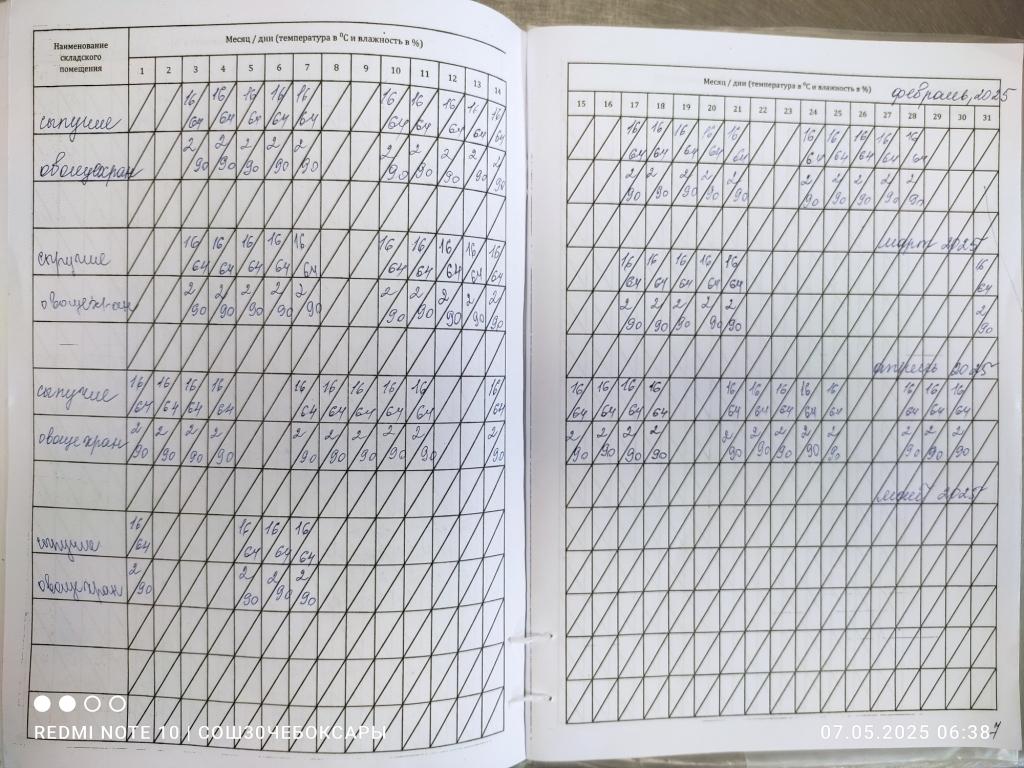 Наименование складского помещения
Месяц / дни (температура в ⁰С и влажность в %)
1 2 3 4 5 6 7 8 9 10 11 12 13 14
сыпучие 16/64 16/64 16/64 16/64 16/64 16/64 16/64 16/64 16/64 16/64
овощехран 2/90 2/90 2/90 2/90 2/90 2/90 2/90 2/90 2/90 2/90
сыпучие 16/64 16/64 16/64 16/64 16/64 16/64 16/64 16/64 16/64 16/64
овощехран 2/90 2/90 2/90 2/90 2/90 2/90 2/90 2/90 2/90 2/90
сыпучие 16/64 16/64 16/64 16/64 16/64 16/64 16/64 16/64 16/64 16/64
овощехран 2/90 2/90 2/90 2/90 2/90 2/90 2/90 2/90 2/90 2/90
сыпучие 16/64 16/64 16/64 16/64
овощехран 2/90 2/90 2/90 2/90
Месяц / дни (температура в ⁰С и влажность в %) февраль, 2025
15 16 17 18 19 20 21 22 23 24 25 26 27 28 29 30 31
16/64 16/64 16/64 16/64 16/64 16/64 16/64 16/64 16/64 16/64
2/90 2 2/90 2/90 2/90 2/90 2/90 2/90 2/90 2/90
март 2025
16/64 16/64 16/64 16/64 16/64 16/64
2/90 2/90 2/90 2/90 2/90 2/90
апрель 2025
16/64 16/64 16/64 16/64 16/64 16/64 16/64 16/64 16/64 16/64 16/64 16/64
2/90 2/90 2/90 2/90 2/90 2/90 2/90 2/90 2/90 2/90 2/90 2/90
май 2025
7
REDMI NOTE 10 | СОШ30ЧЕБОКСАРЫ
07.05.2025 06:38